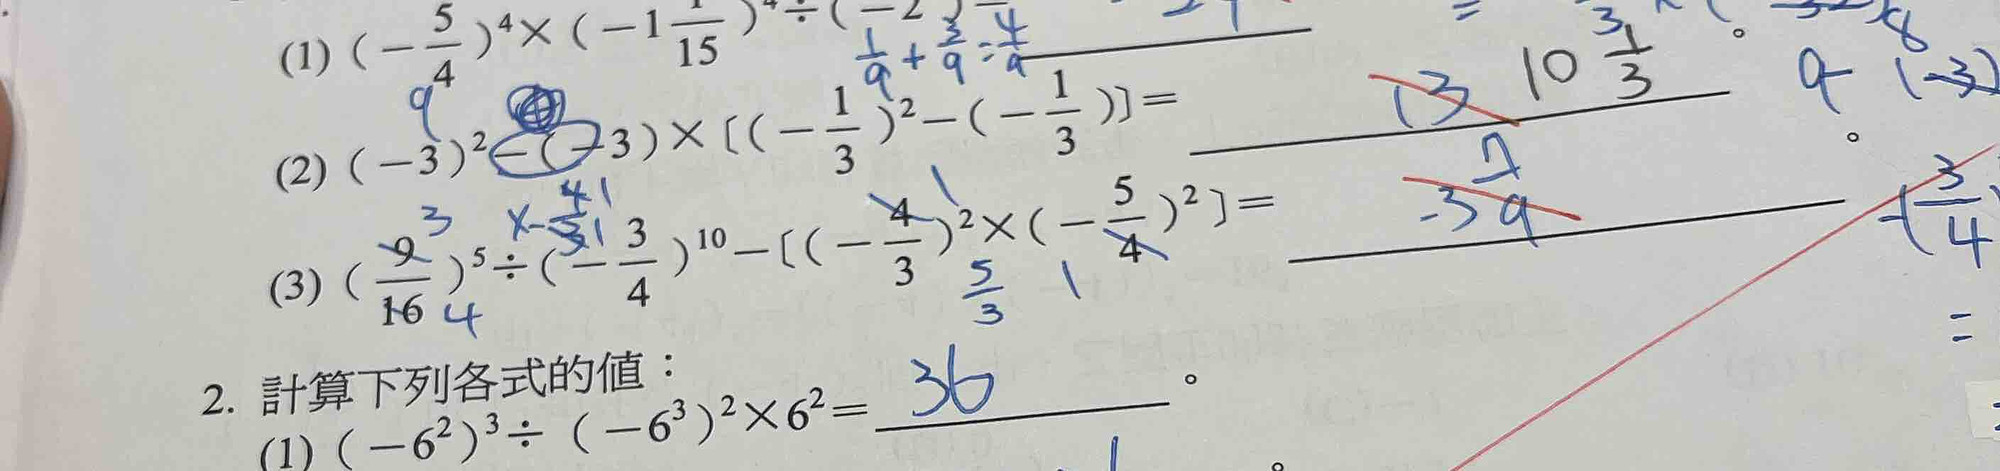 (1) (-5/4)⁴×(-1 1/15)⁴÷(-2
1/9 + 3/9 = 4/9
9
(2) (-3)²-(-3)×[(-1/3)²-(-1/3)]= 13 10 1/3 。
9-(-3)
(3) (9/16)⁵÷(-3/4)¹⁰-[(-4/3)²×(-5/4)²]= -39 。
3 4 1 1 5/3 1
3/4
=
2. 計算下列各式的值：
(1) (-6²)³÷(-6³)²×6²= 36 。